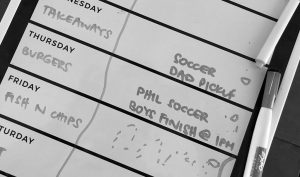 NESDAY
TAKEAWAYS
THURSDAY
BURGERS
SOCCER
DAD PICKLE
FRIDAY
FISH N CHIPS
PHIL SOCCER
BOYS FINISH @ 1PM
TURDAY